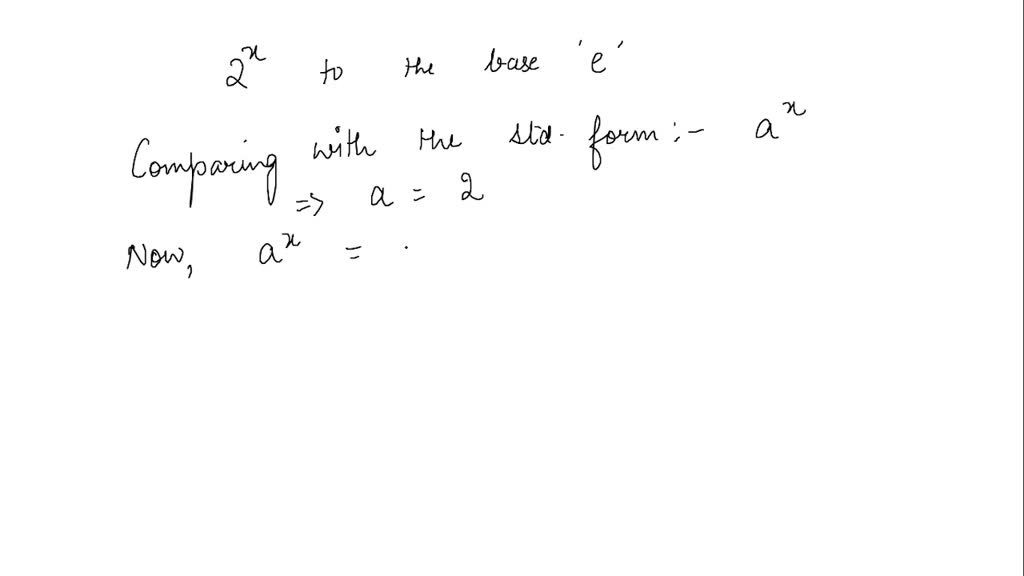 2^x to the base 'e'
Comparing with the std. form :- a^x
=> a = 2
Now, a^x = .